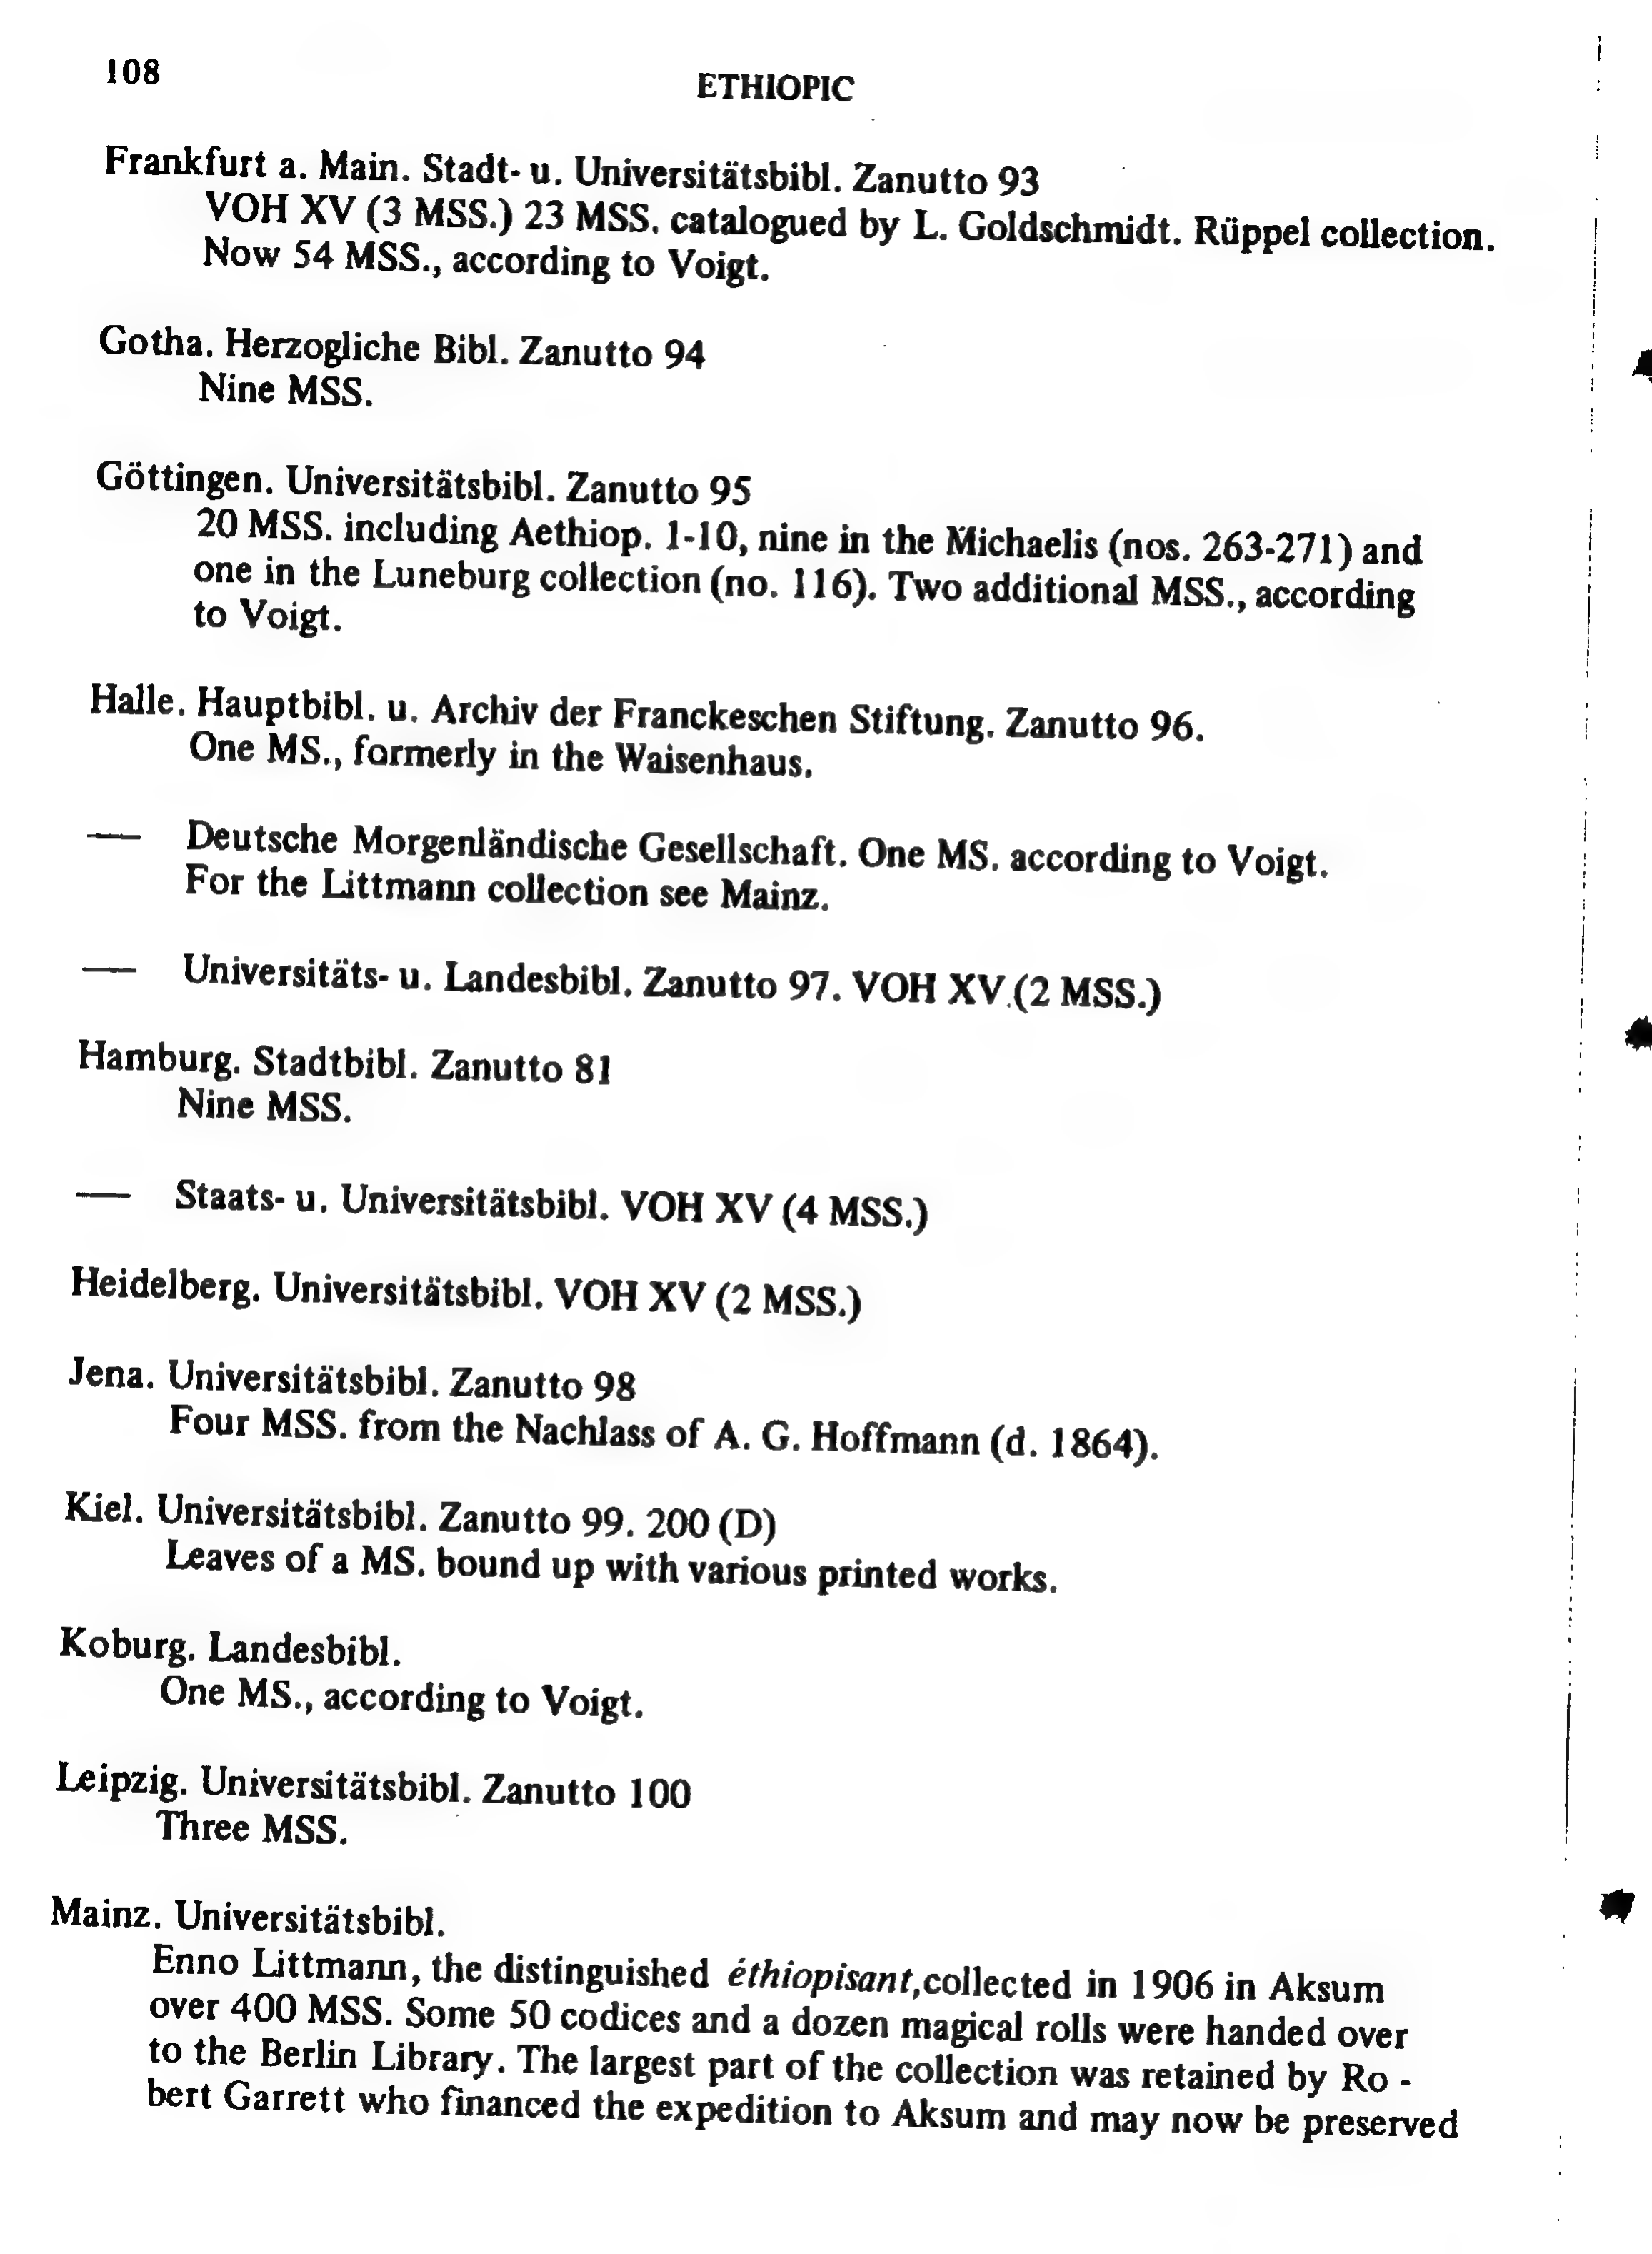 108
ETHIOPIC
Frankfurt a. Main. Stadt- u. Universitätsbibl. Zanutto 93
VOH XV (3 MSS.) 23 MSS. catalogued by L. Goldschmidt. Rüppel collection.
Now 54 MSS., according to Voigt.
Gotha. Herzogliche Bibl. Zanutto 94
Nine MSS.
Göttingen. Universitätsbibl. Zanutto 95
20 MSS. including Aethiop. 1-10, nine in the Michaelis (nos. 263-271) and
one in the Luneburg collection (no. 116). Two additional MSS., according
to Voigt.
Halle. Hauptbibl. u. Archiv der Franckeschen Stiftung. Zanutto 96.
One MS., formerly in the Waisenhaus.
— Deutsche Morgenländische Gesellschaft. One MS. according to Voigt.
For the Littmann collection see Mainz.
— Universitäts- u. Landesbibl. Zanutto 97. VOH XV (2 MSS.)
Hamburg. Stadtbibl. Zanutto 81
Nine MSS.
— Staats- u. Universitätsbibl. VOH XV (4 MSS.)
Heidelberg. Universitätsbibl. VOH XV (2 MSS.)
Jena. Universitätsbibl. Zanutto 98
Four MSS. from the Nachlass of A. G. Hoffmann (d. 1864).
Kiel. Universitätsbibl. Zanutto 99. 200 (D)
Leaves of a MS. bound up with various printed works.
Koburg. Landesbibl.
One MS., according to Voigt.
Leipzig. Universitätsbibl. Zanutto 100
Three MSS.
Mainz. Universitätsbibl.
Enno Littmann, the distinguished éthiopisant, collected in 1906 in Aksum
over 400 MSS. Some 50 codices and a dozen magical rolls were handed over
to the Berlin Library. The largest part of the collection was retained by Ro -
bert Garrett who financed the expedition to Aksum and may now be preserved